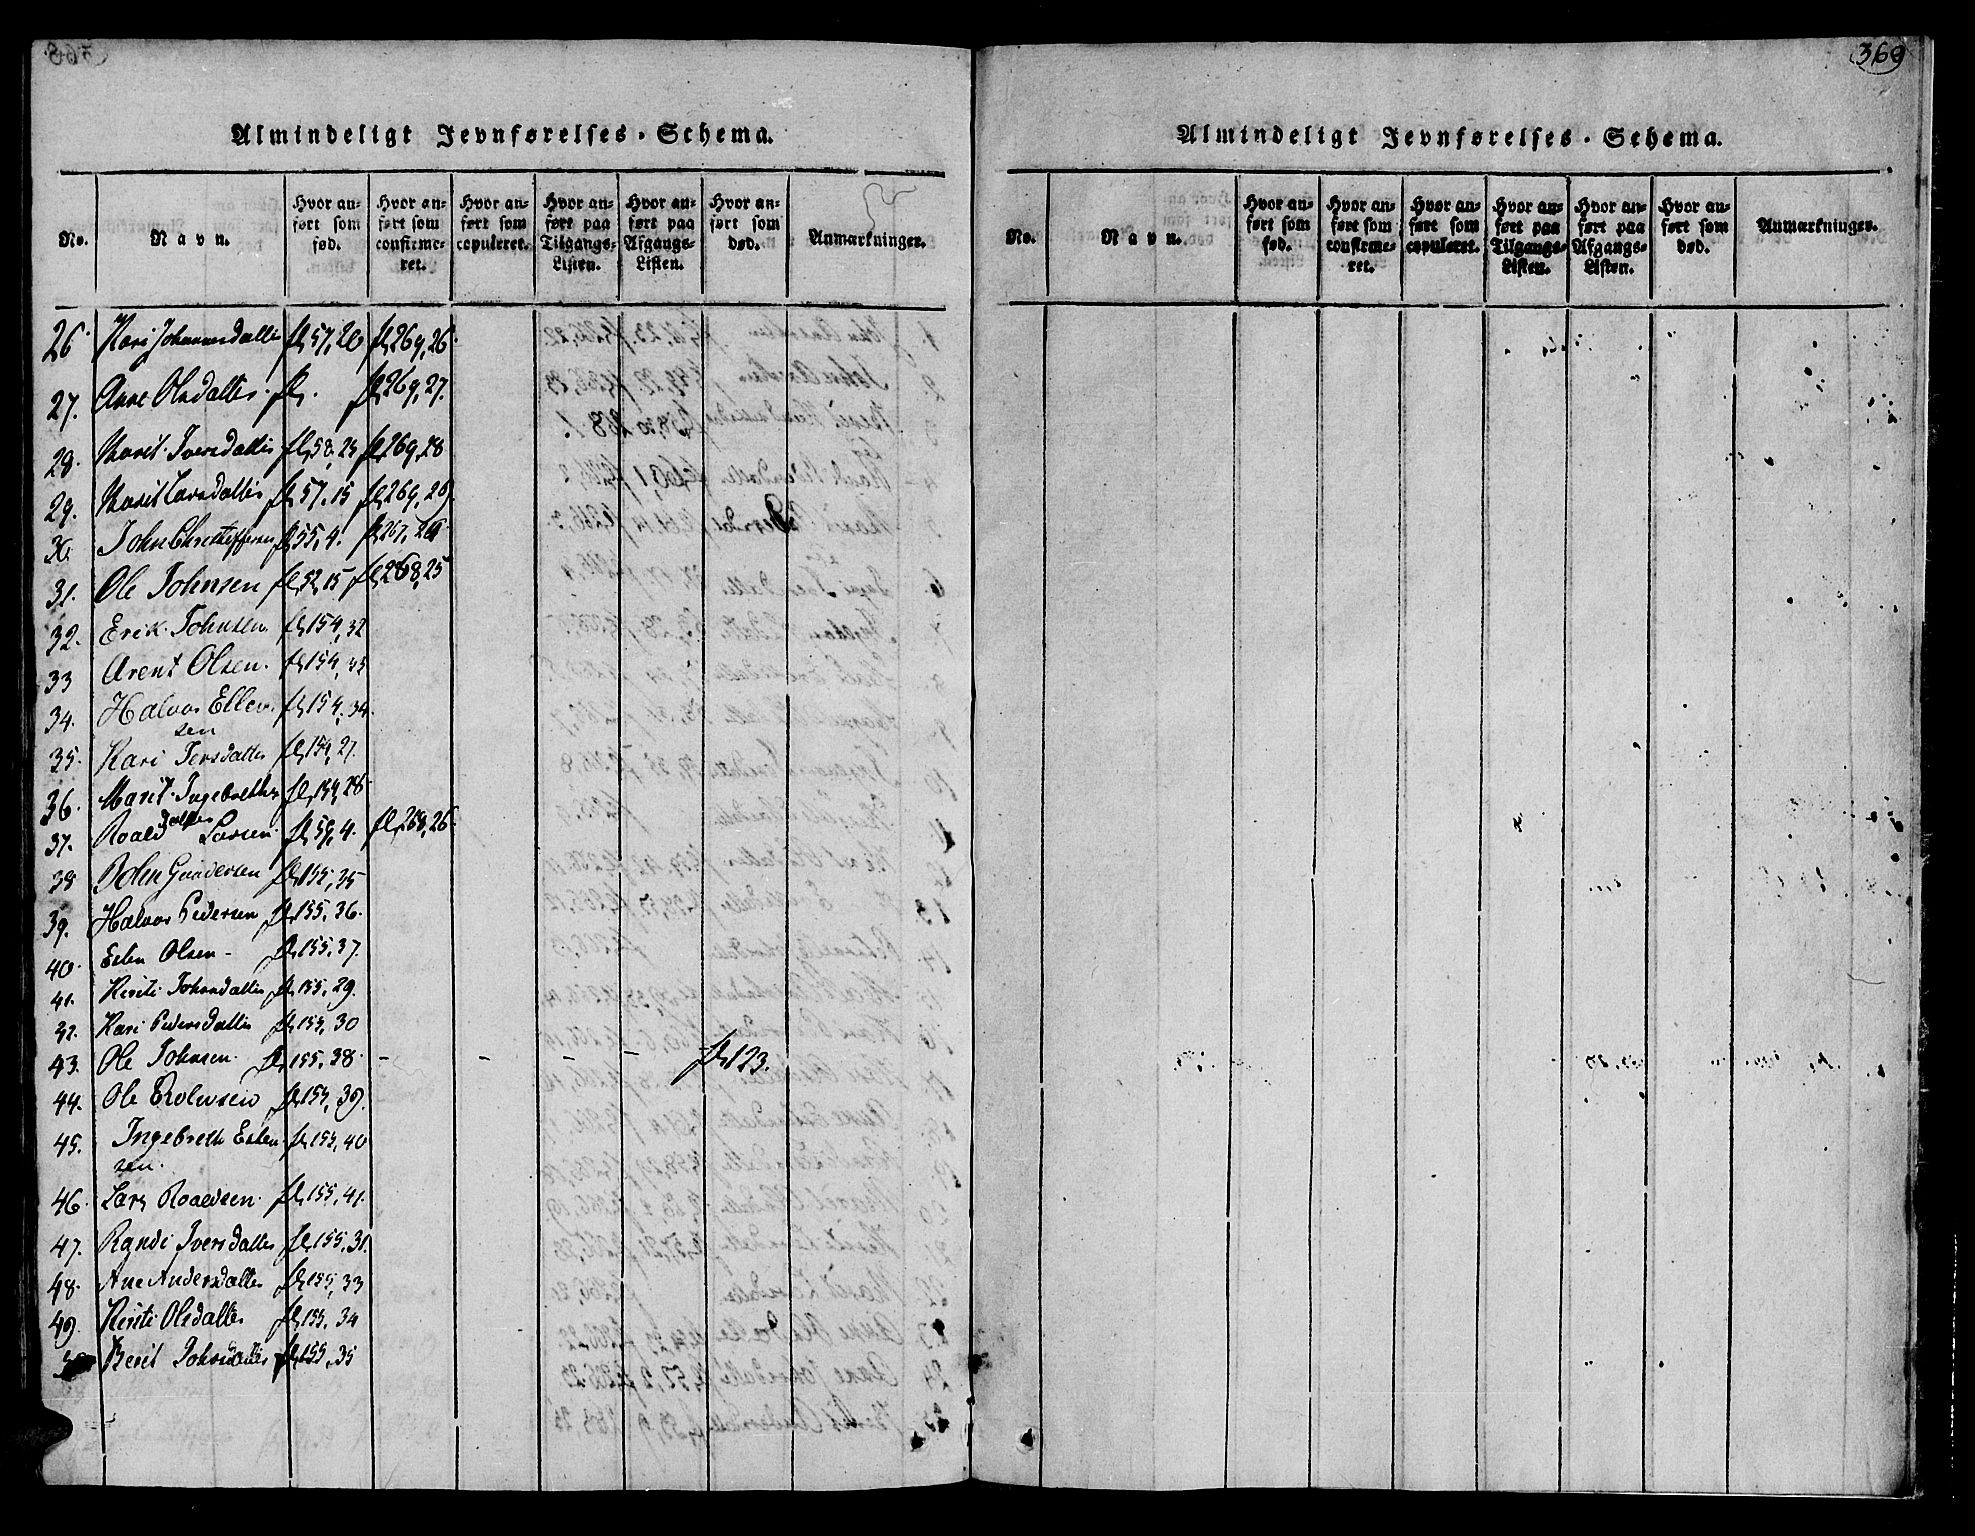 Almindeligt Jevnførelses-Schema.
No. Navn. Hvor anført som fød. Hvor anført som confirmeret. Hvor anført som copuleret. Hvor anført paa Tilgangs-Listen. Hvor anført paa Afgangs-Listen. Hvor anført som død. Anmærkninger.
26. Kari Johannesdatter fl 57, 20 fl 269, 26.
27. Anne Olsdatter. fl. fl 269, 27.
28. Marit Iversdatter fl 58, 25 fl 269, 28
29. Marit Larsdatter fl 57, 15 fl 269, 29
30. John fl 55, 4.
31. Ole Johnsen fl 52, 15 fl 268, 25
32. Erik Johnsen. fl 154, 32
33 Arent Olsen. fl 154, 33
34. Halvor Ellev fl 154, 34.
sen
35. Kari Iversdatter fl 154, 27.
36. Marit Ingebreths fl 154, 28
datter
37. Roald Larsen. fl 59, 4. fl 268, 26.
38 John Gundersen fl 155, 35
39. Halvor Pedersen fl 155, 36.
40. Esten Olsen - fl 155, 37.
41. Kirsti Johnsdatter fl 155, 29.
42. Kari Pedersdatter fl 155, 30
43. Ole Johnsen. fl 155, 38 - - - - fl 123.
44. Ole fl 155, 39.
45. Ingebreth Esten fl 155, 40
sen.
46. Lars Roaldsen. fl 155, 41.
47. Randi Iversdatter fl 155, 31.
48. Ane Andersdatter fl 155, 33
49. Kirsti Olsdatter fl 155, 34
Berit Johnsdatter fl 155, 35
369
Almindeligt Jevnførelses-Schema.
No. Navn. Hvor anført som fød. Hvor anført som confirmeret. Hvor anført som copuleret. Hvor anført paa Tilgangs-Listen. Hvor anført paa Afgangs-Listen. Hvor anført som død. Anmærkninger.